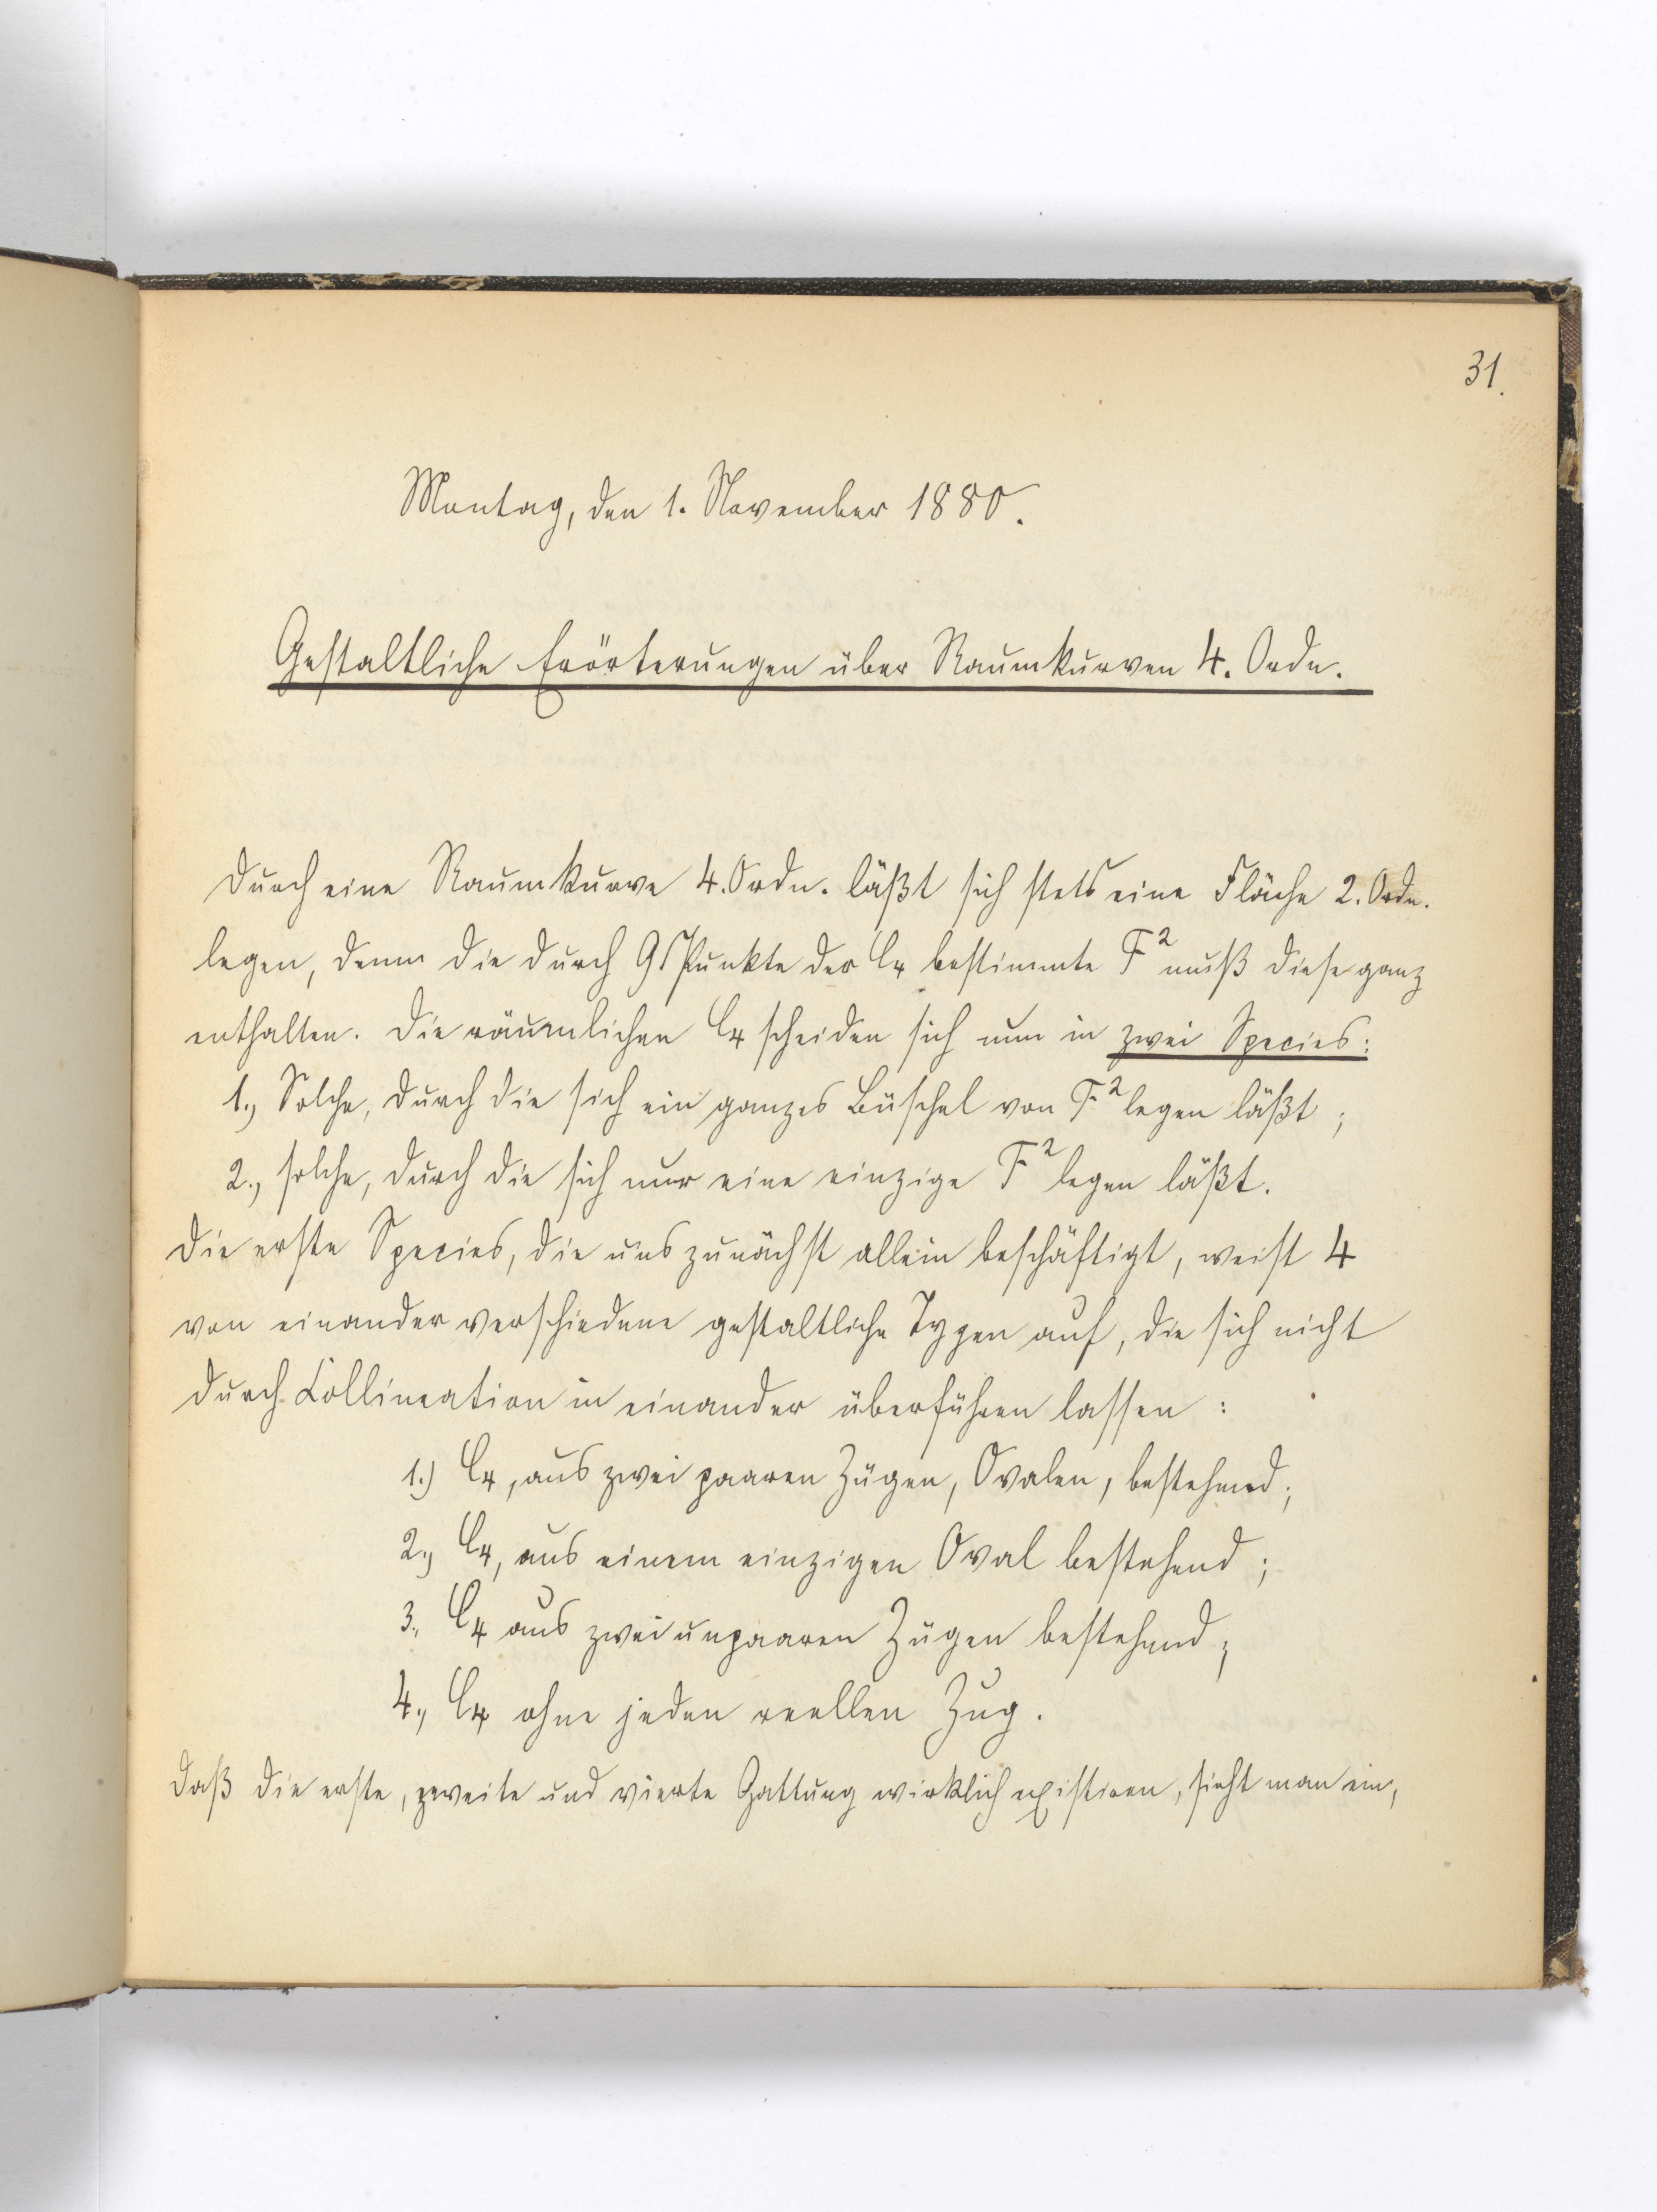 31.
Montag, den 1. November 1880.
Gestaltliche Erörterungen über Raumkurven 4. Ordn.
Durch eine Raumkurve 4. Ordn. läßt sich stets eine Fläche 2. Ordn.
legen, denn die durch 9 Punkte der C₄ bestimmte F² muß diese ganz
enthalten. Die räumlichen C₄ scheiden sich nun in zwei Species:
1., Solche, durch die sich ein ganzes Büschel von F² legen läßt;
2., solche, durch die sich nur eine einzige F² legen läßt.
Die erste Species, die uns zunächst allein beschäftigt, weist 4
von einander verschiedene gestaltliche Typen auf, die sich nicht
durch Collineation in einander überführen lassen:
1.) C₄, aus zwei paaren Zügen, Ovalen, bestehend;
2., C₄, aus einem einzigen Oval bestehend;
3., C₄ aus zwei unpaaren Zügen bestehend;
4., C₄ ohne jeden reellen Zug.
Daß die erste, zweite und vierte Gattung wirklich existiren, sieht man ein,